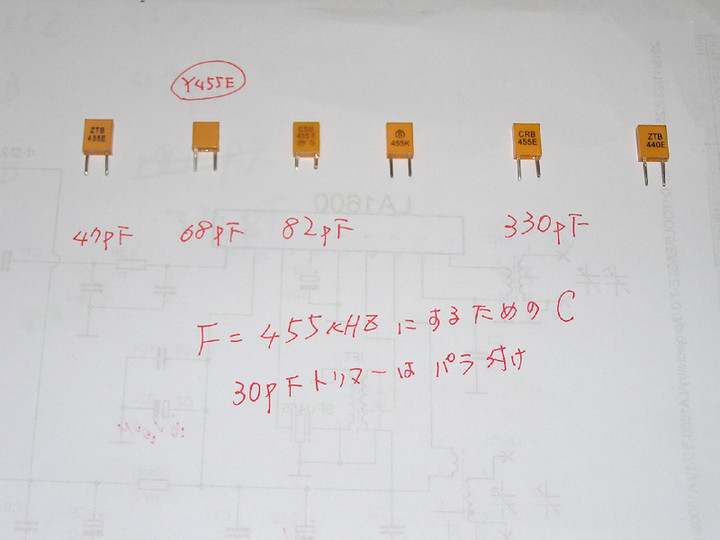 Y455E
ZTB
455E
CSB
455E
455K
CRB
455E
ZTB
440E
47pF 68pF 82pF 330pF
F = 455KHZ にするためのC
30pFトリマーはパラ付け
LA1600